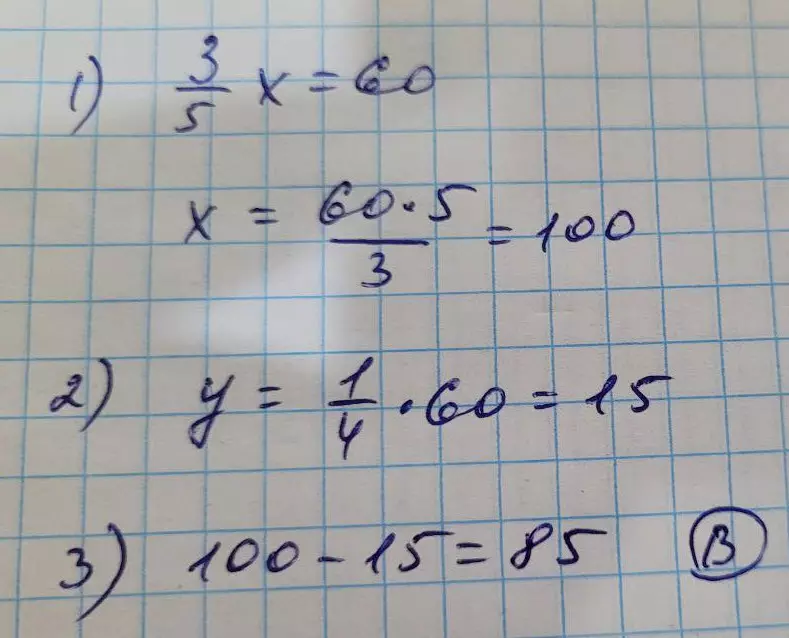 1) 3/5 x = 60
x = 60·5/3 = 100
2) y = 1/4 · 60 = 15
3) 100 - 15 = 85 B